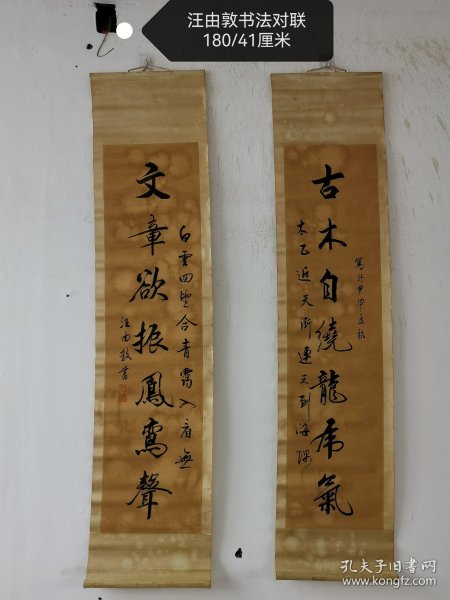 汪由敦书法对联
180/41厘米
古木自繞龍虎氣
寫於甲申孟秋
太乙近天都連天到海隅
文章欲振鳳鸞聲
白雲回望合青靄入看無
汪由敦書
孔夫子旧书网
www.kongfz.com